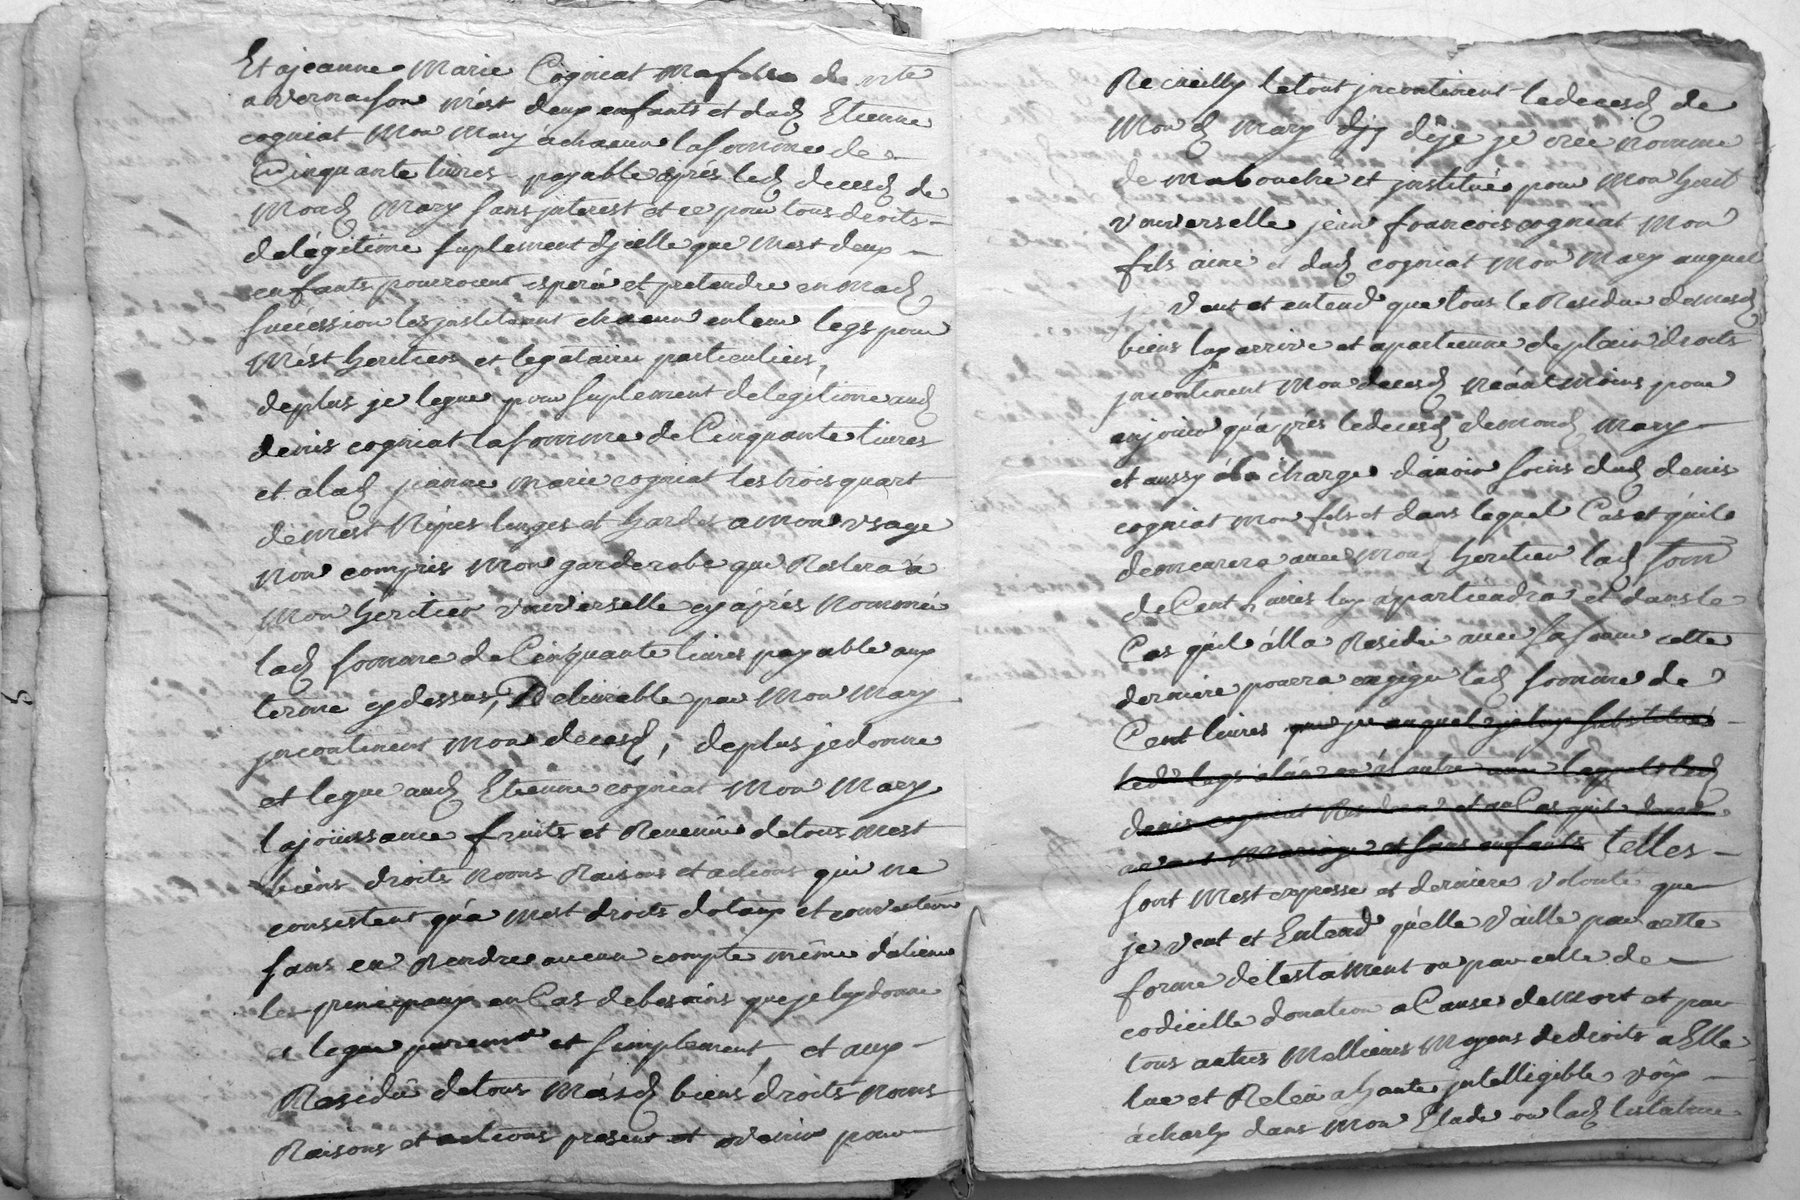 Et ajeanne Marie Cogniat Ma fille de
a vernaison mest deux enfants et dud Etienne
cogniat Mon Mary a chacun la somme de
Cinquante livres payable aprés led decesd de
Mond Mary sans jnterest et ce pour tous droits
delégitime suplement djcelle que mest deux
enfants pourroient esperér et pretendre en mad
succession les jnstituant chacun en leur legs pour
Mést heritiers et legataires particuliers,
deplus je legue pour suplement delegitime aud
denis cogniat la somme de Cinquante livres
et alad jeanne Marie cogniat les trois quart
demest Nipes linges et hardes a mon usage
Non compris Mon garderobe que Restera a
Mon heritier universelle cy áprés Nommé
lad somme de Cinquante livres payable aux
terme cy dessus, Delivrable par Mon Mary
jncontinent Mon decesd, deplus je donne
et legue aud Etienne cogniat Mon Mary
la joüissance fruits et Revenûs detous mest
biens droits noms Raisons et actions qui ne
consistent qu'a mest droits dotaux et convention
sans en Rendre aucun compte même d'aliene
les principaux en Cas de besoins que je luy donne
et legue purement et simplement, et aux
Residû detous Mésd biens droits noms
Raisons et actions present et avenir pour
Recueilly le tout jncontinent le decesd de
Mon d Mary dja je crée nomme
de ma bouche et jnstitué pour Mon herit
universelle jean francois cogniat Mon
fils ainé et dud cogniat Mon Mary auquel
je veut et entend que tous le Residue de mesd
biens luy arrive et apartienne deplain droits
jncontinent Mon decesd néant moins pour
en jouir qu'áprés le decesd demond Mary
et aussy a la charge dávoir soins dud denis
cogniat mon fils et dans lequel Cas et quil
demeurera avec Mond heritier lad som
de Cent livres luy apartiendra et dans le
Cas quil álla Residé avec sa soeur cette
derniere pourra exigér lad somme de
Cent livres que je auquel je luy substitué
led legs avec lequel led
denis cogniat Residera et au Cas quil deced
avant Mariage et sans enfants telles
sont Mest expresse et derniere volonté que
je veut et Entend qu'elle vaille par cette
forme detestament ou par celle de
codicille donation a Cause de Mort et par
tous autres Mellieurs Moyens de droits a Elle
lue et Releu a haute jntelligible voix
á charly dans Mon Etude ou lad testatrice